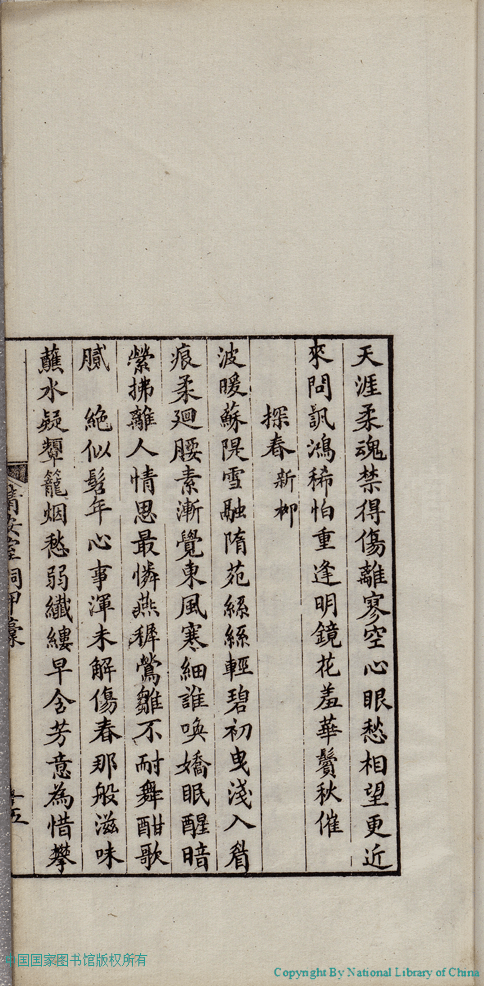 天涯柔魂禁得傷離寥空心眼愁相望更近
來問訊鴻稀怕重逢明鏡花羞華鬢秋催
探春 新柳
波暖蘇隄雪融隋苑絲絲輕碧初曳淺入眉
痕柔迴腰素漸覺東風寒細誰喚嬌眠醒暗
縈拂離人情思最憐燕穉鶯雛不耐舞酣歌
膩 絶似髫年心事渾未解傷春那般滋味
蘸水疑顰籠烟愁弱纖縷早含芳意為惜攀
詞甲稾
十五
中国国家图书馆版权所有
Copyright By National Library of China